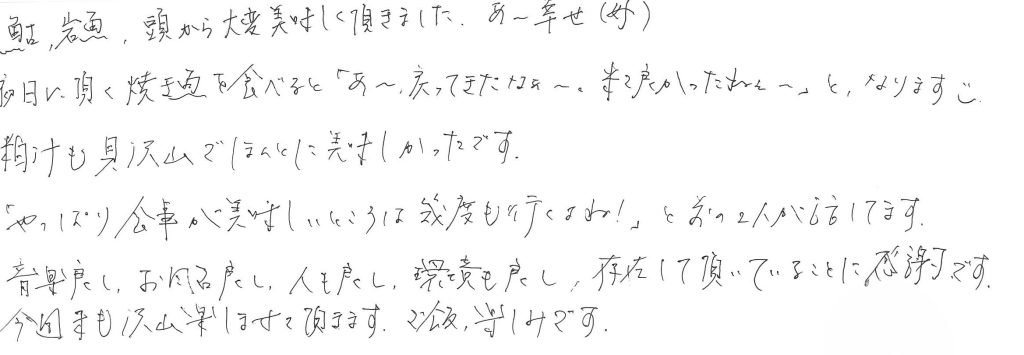 鮎、岩魚、頭から大変美味しく頂きました。あ〜幸せ(妙)
初日に頂く焼き魚を食べると「あ〜、戻ってきたなぁ〜。来て良かったねぇ〜」と、なります
粕汁も具沢山でほんとに美味しかったです。
「やっぱり食事が美味しいところは幾度も行くよね!」と あの2人が言ってます。
音楽良し、お風呂良し、人も良し、環境も良し、存在して頂いていることに感謝です。
今回も沢山楽しませて頂きます。ご飯、楽しみです。